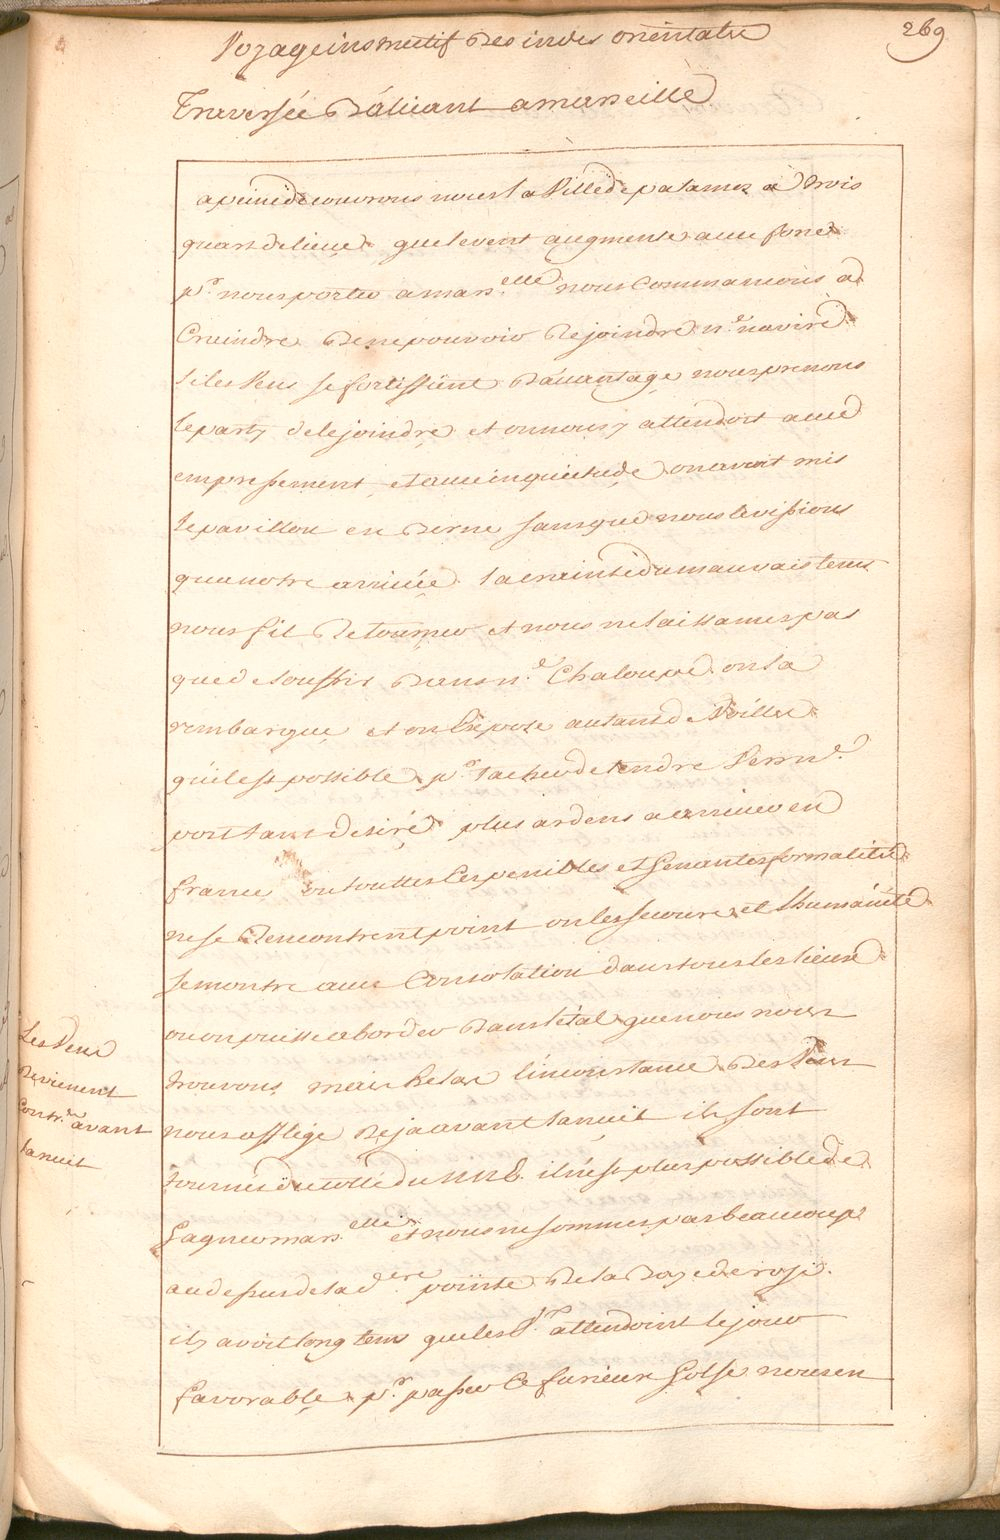 Voyage instructif Des indes orientales
269
Traversée D'alicant a marseille
a peine decouvrons nous la Ville de palamos a trois
quart de lieue que le vent augmente avec force
pr. nous porter a mars.elle nous Commancons a
Craindre De ne pouvoir Rejoindre n.e navire
si les Vens se fortiffient D'avantage nous prenons
le party de le joindre et on nous y attendoit avec
empressement et avec inquietude on avoit mis
le pavillon en Berne sans que nous le vissions
qua notre arrivée. la crainte du mauvais tems
nous fit Retourner et nous ne laissames pas
que de souffrir Dans n.e Chaloupe on la
rembarque et on Expose autant de Voilles
qu'il est possible pr. tacher de tendre Vers n.e
port tant desiré plus ardens a arriver en
france ou touttes les penibles et genantes formalités
ne se Rencontrent point on les secoure et l'humanité
se montre avec Consolation dans tous les lieux
ou on puisse aborder Dans l'état que nous nous
trouvons, mais helas l'inconstance Des Vens
nous afflige Deja avant la nuit ils sont
tournés du cotté du NNE. il n'est plus possible de
Gagner mars.elle et nous ne sommes pas beaucoup
au dessus de la d.ere pointe De la Baye de rose.
il y avoit long tems que les attendoint le jour
favorable pr. passer Ce furieux Golfe nous en
Les Vens
Devienent
Contr.es avant
la nuit